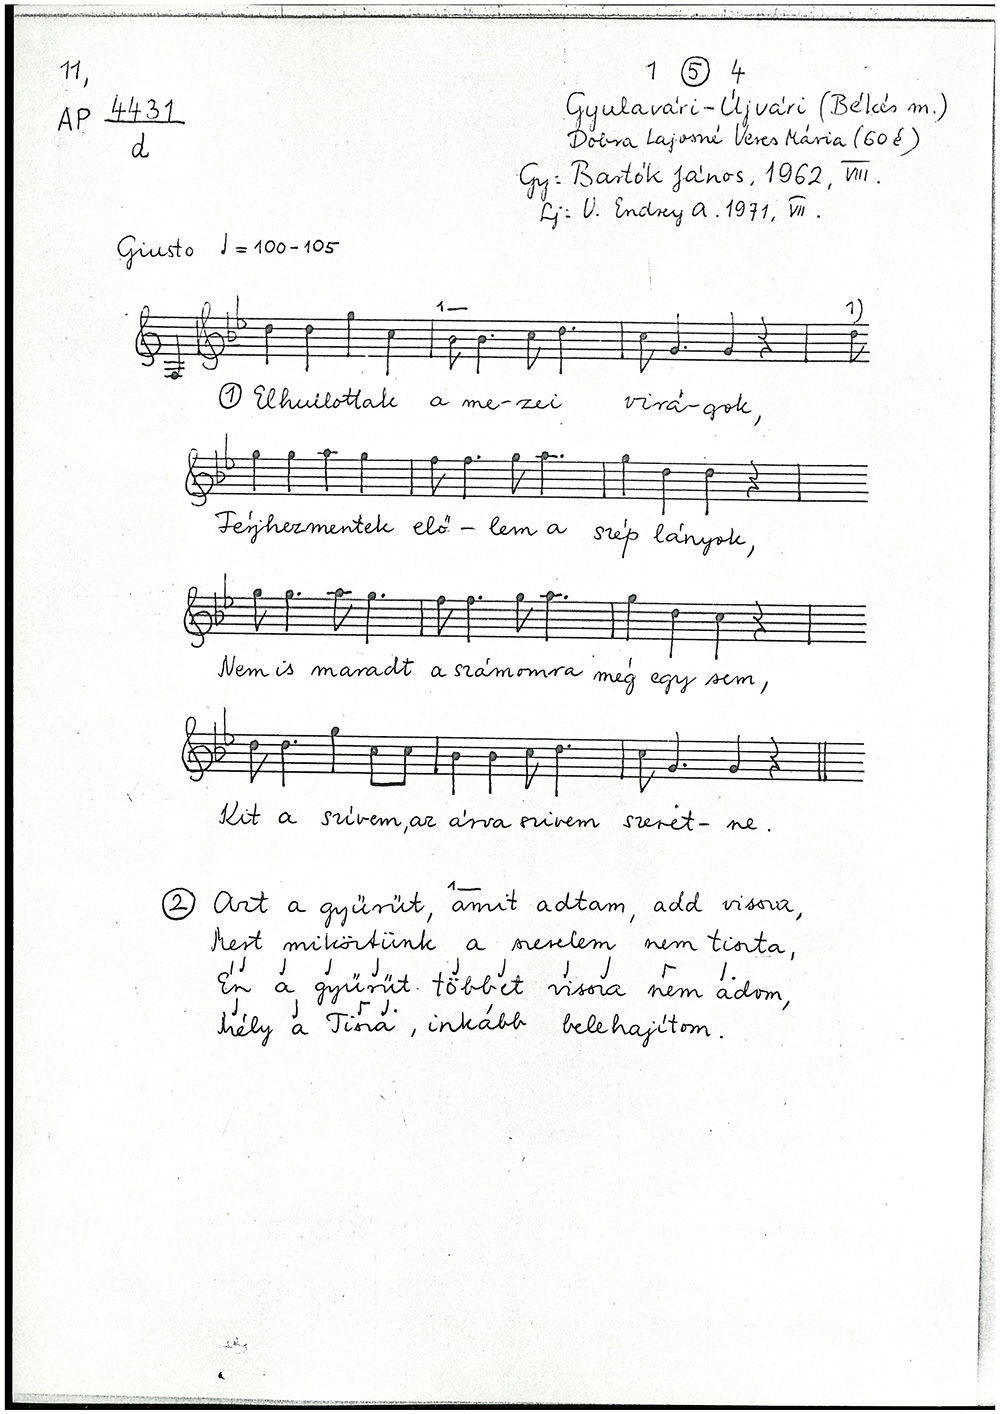 11,
1 ⑤ 4
AP 4431
d
Gyulavári-Újvári (Békés m.)
Dobra Lajosné Veres Mária (60 é)
Gy: Bartók János, 1962, VIII.
Lj: V. Endrey A. 1971, VII.
Giusto ♩ = 100-105
1
1)
① Elhullottak a me-zei virá-gok,
Férjhezmentek elő-lem a szép lányok,
Nem is maradt a számomra még egy sem,
Kit a szívem, az árva szivem szeret-ne.
1
② Azt a gyűrűt, amit adtam, add vissza,
Mert miköztünk a szerelem nem tiszta,
Én a gyűrűt többet vissza nem adom,
Mély a Tisza, inkább belehajítom.